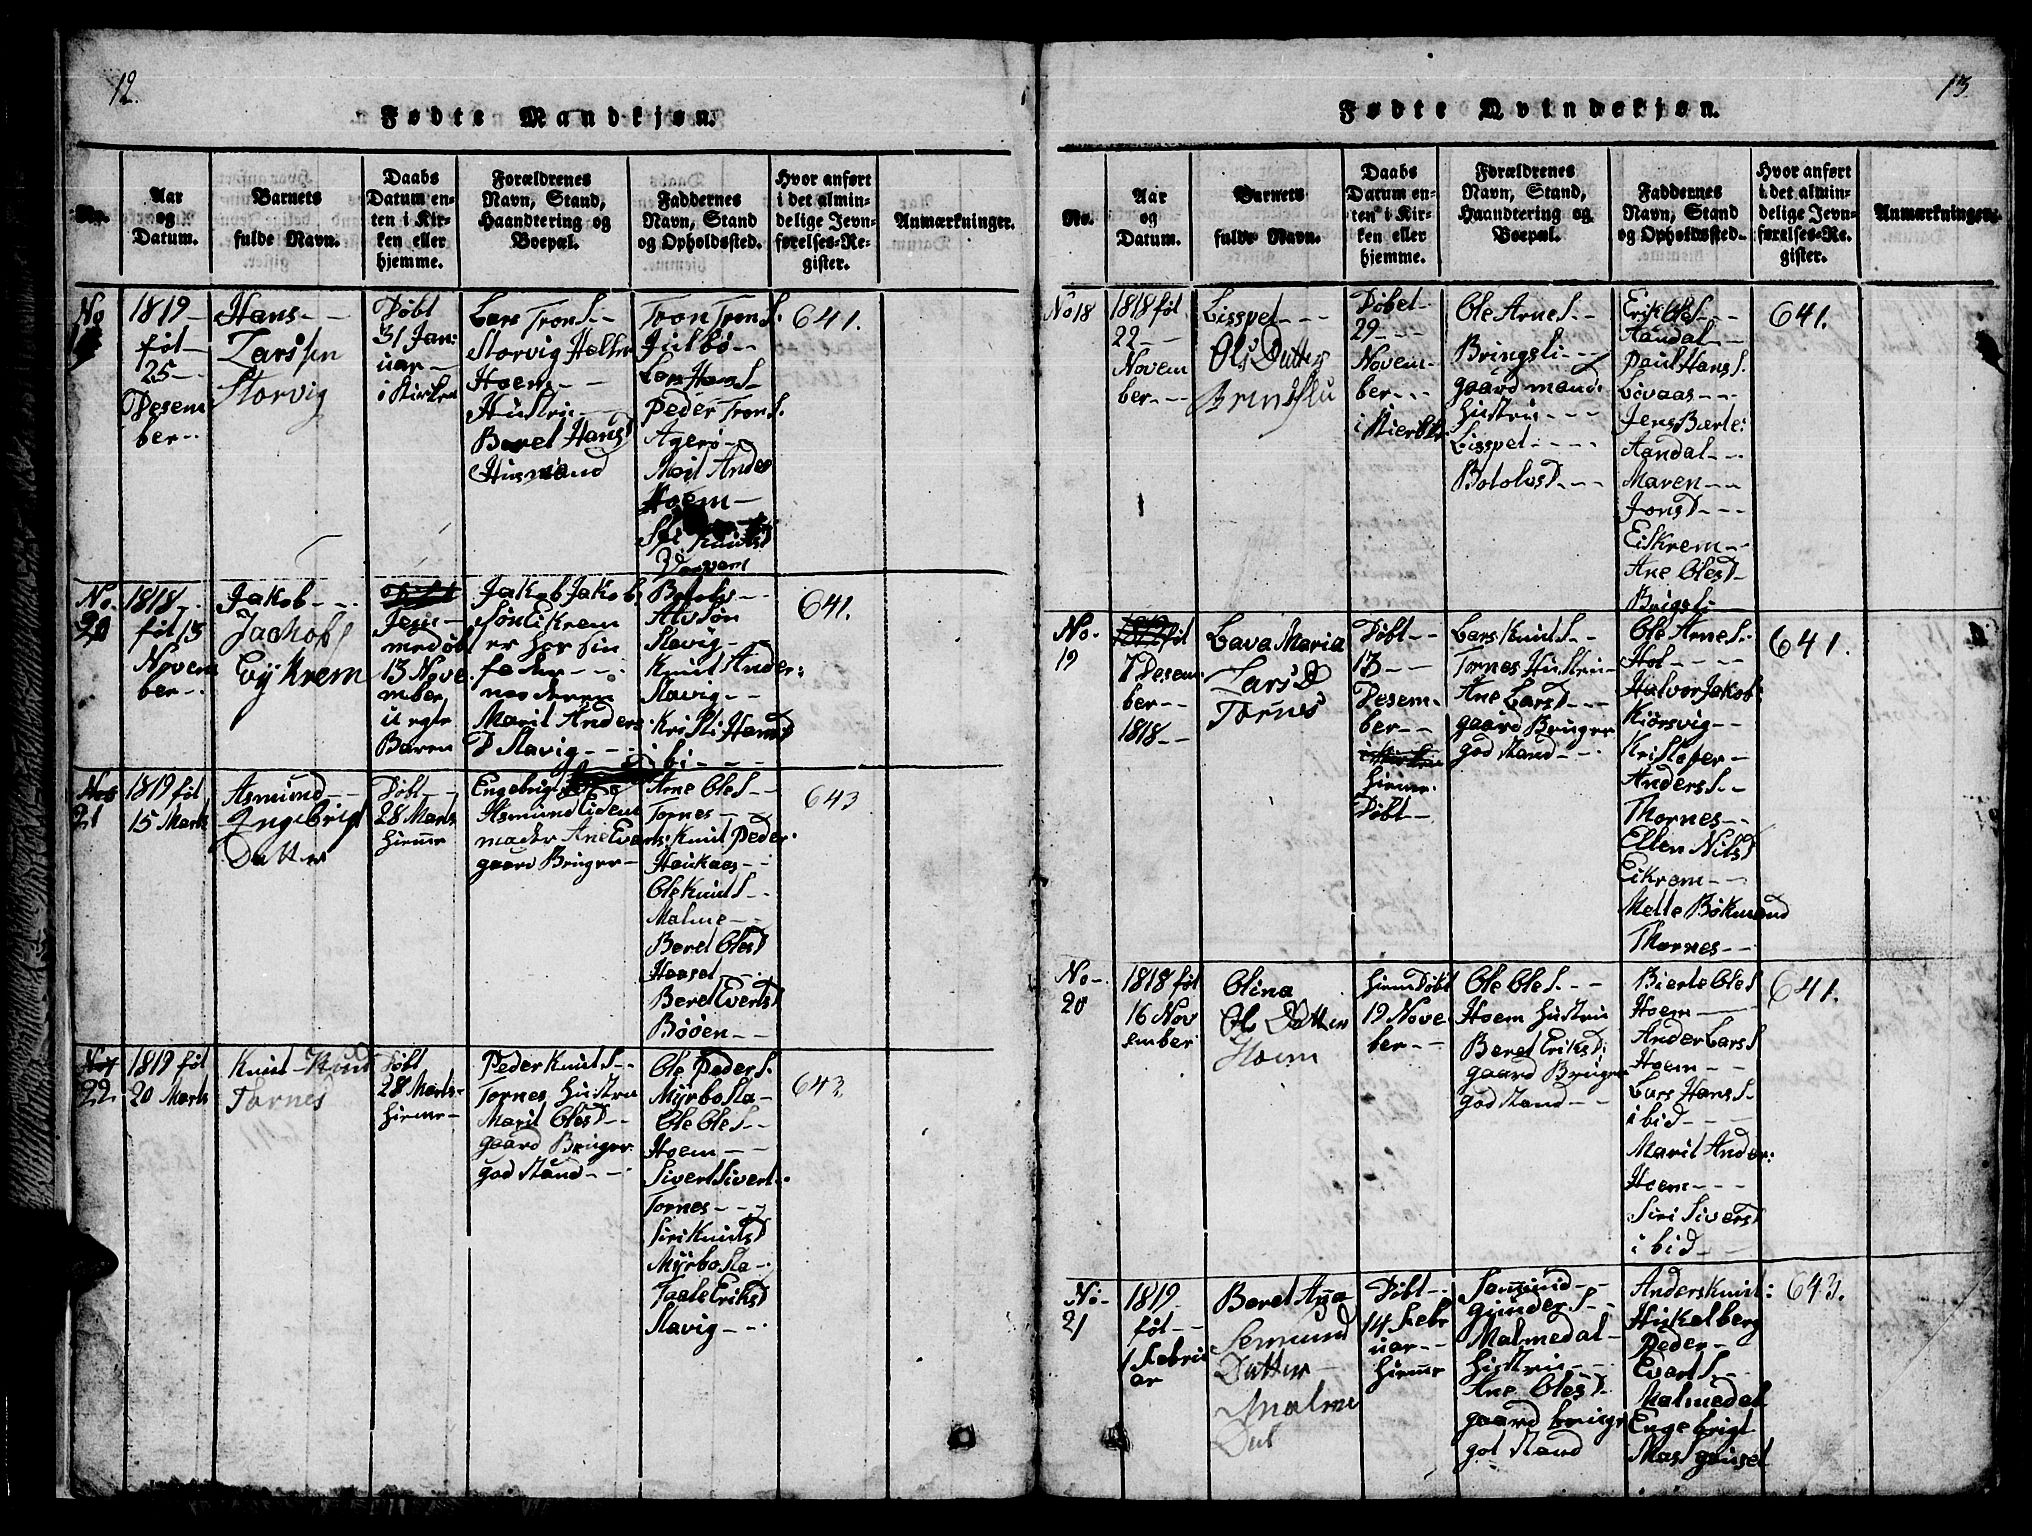 12.
Fødte Mandkjøn.
No.
Aar
og
Datum.
Barnets
fulde Navn.
Daabs
Datum en-
ten i Kir-
ken eller
hjemme.
Forældrenes
Navn, Stand,
Haandtering og
Boepæl.
Faddernes
Navn, Stand
og Opholdssted.
Hvor anført
i det almin-
delige Jevn-
førelses-Re-
gister.
Anmærkninger.
No
1819
føt
25
Desem
ber
Hans
Larssen
Storvig
Døbt
31 Jan:
uar
i Kirken
Lars Trons.
Storvig
Hoem
Hustru
Beret Hansd
Husmand
Tron Trons.
Julbø
Lars Hans S
Peder Trons.
Agerø
Anders
Hoem
Knudsd
641.
No.
20
1818
føt 13
Novem
ber
Jakob
Jachobs
Eykrem
Jem
medøbt
13 Nove
mber
uegte
Baren
Jakob Jakob
Søn Eikrem
er hor sin
fader
moderen
Marit Anders
D Slavig
Botolv
Slavig
Knut Ander:
Slavig
Kristi Hansd
i bi
641.
No
21
1819 føt
15 Marts
Asmund
Ingebrigt
Datter
Døbt
28 Marts
hiemme
Engebrigt
Asmund Eidem
moder Ane Everts:
gaard Bruger
Arne Oles.
Tornes
Knut Peder.
Haukaas
Ole Knuts.
Malme
Beret Olesd
Haasel
Beret Evertsd
Bööen
643
No
22
1819 føt
20 Marts
Knut Knud
Tornes
Døbt
28 Marts
hieme
Peder Knuts.
Tornes Hustru
Marit Olesd
gaard Bruger
god stand
Ole Peders.
Myrbosta
Ole Oles.
Hoem
Sivert Sivert.
Tornes
Siri Knutsd
Myrbosta
Eriksd
Slavig
643.
13
Fødte Qvindekjøn.
No.
Aar
og
Datum.
Barnets
fulde Navn.
Daabs
Datum en-
ten i Kir-
ken eller
hjemme.
Forældrenes
Navn, Stand,
Haandtering og
Boepæl.
Faddernes
Navn, Stand
og Opholdssted.
Hvor anført
i det almin-
delige Jevn-
førelses-Re-
gister.
Anmærkninger.
No 18
1818 føt
22
Novem
ber
Lisspet
Ols Datter
Døbet
29
Novem-
ber
i Kierke
Ole Arnes.
Bringsli
gaard mand
hustru
Lisspet
Botolvsd
Erik Ols.
Aandal
Paul Hans.
Løvaas
Jens Bærte:
Aandal
Maren
Jonsd
Eiskrem
Ane Olesd
Brigsli
641.
No.
19
føt
7 Desem
ber
1818
Lava Maria
Lars D
Tornes
Døbt
13
Desem-
ber
hieme.
Døbt
Lars Knuts.
Tornes Hustru
Ane Larsd
gaard Bruger
god stand
Ole Arnes.
Hol
Halvor Jakob:
Kiörsvig
Kristofer
Anders.
Thornes
Ellen Nilsd
Eikrem
Mette Bökmand
Thornes
641.
No
20
1818 føt
16 Nov
ember
Olina
Ols Datter
Hoem
hiem Døbt
19 Nove
ber
Ole Oles.
Hoem hustru
Beret Eriksd:
gaard Bruger
god stand
Bierte Oles
Hoem
Ander Lars
Hoem
Lars Hans.
i bid
Marit Ander:
Hoem
Siri Siversd
i bid
641.
No
21
1819
føt
1 Febru
ar
Beret Ana
Semund
Datter
Malme
Dal
Døbt
14 Febr
uar
hieme
Semund
Gunders.
Malmedal
hustru
Ane Olesd
gaard bruger
got stand
Anders Knut:
Hukelberg
Peder
Everts.
Malmedal
Engebrigt
643.